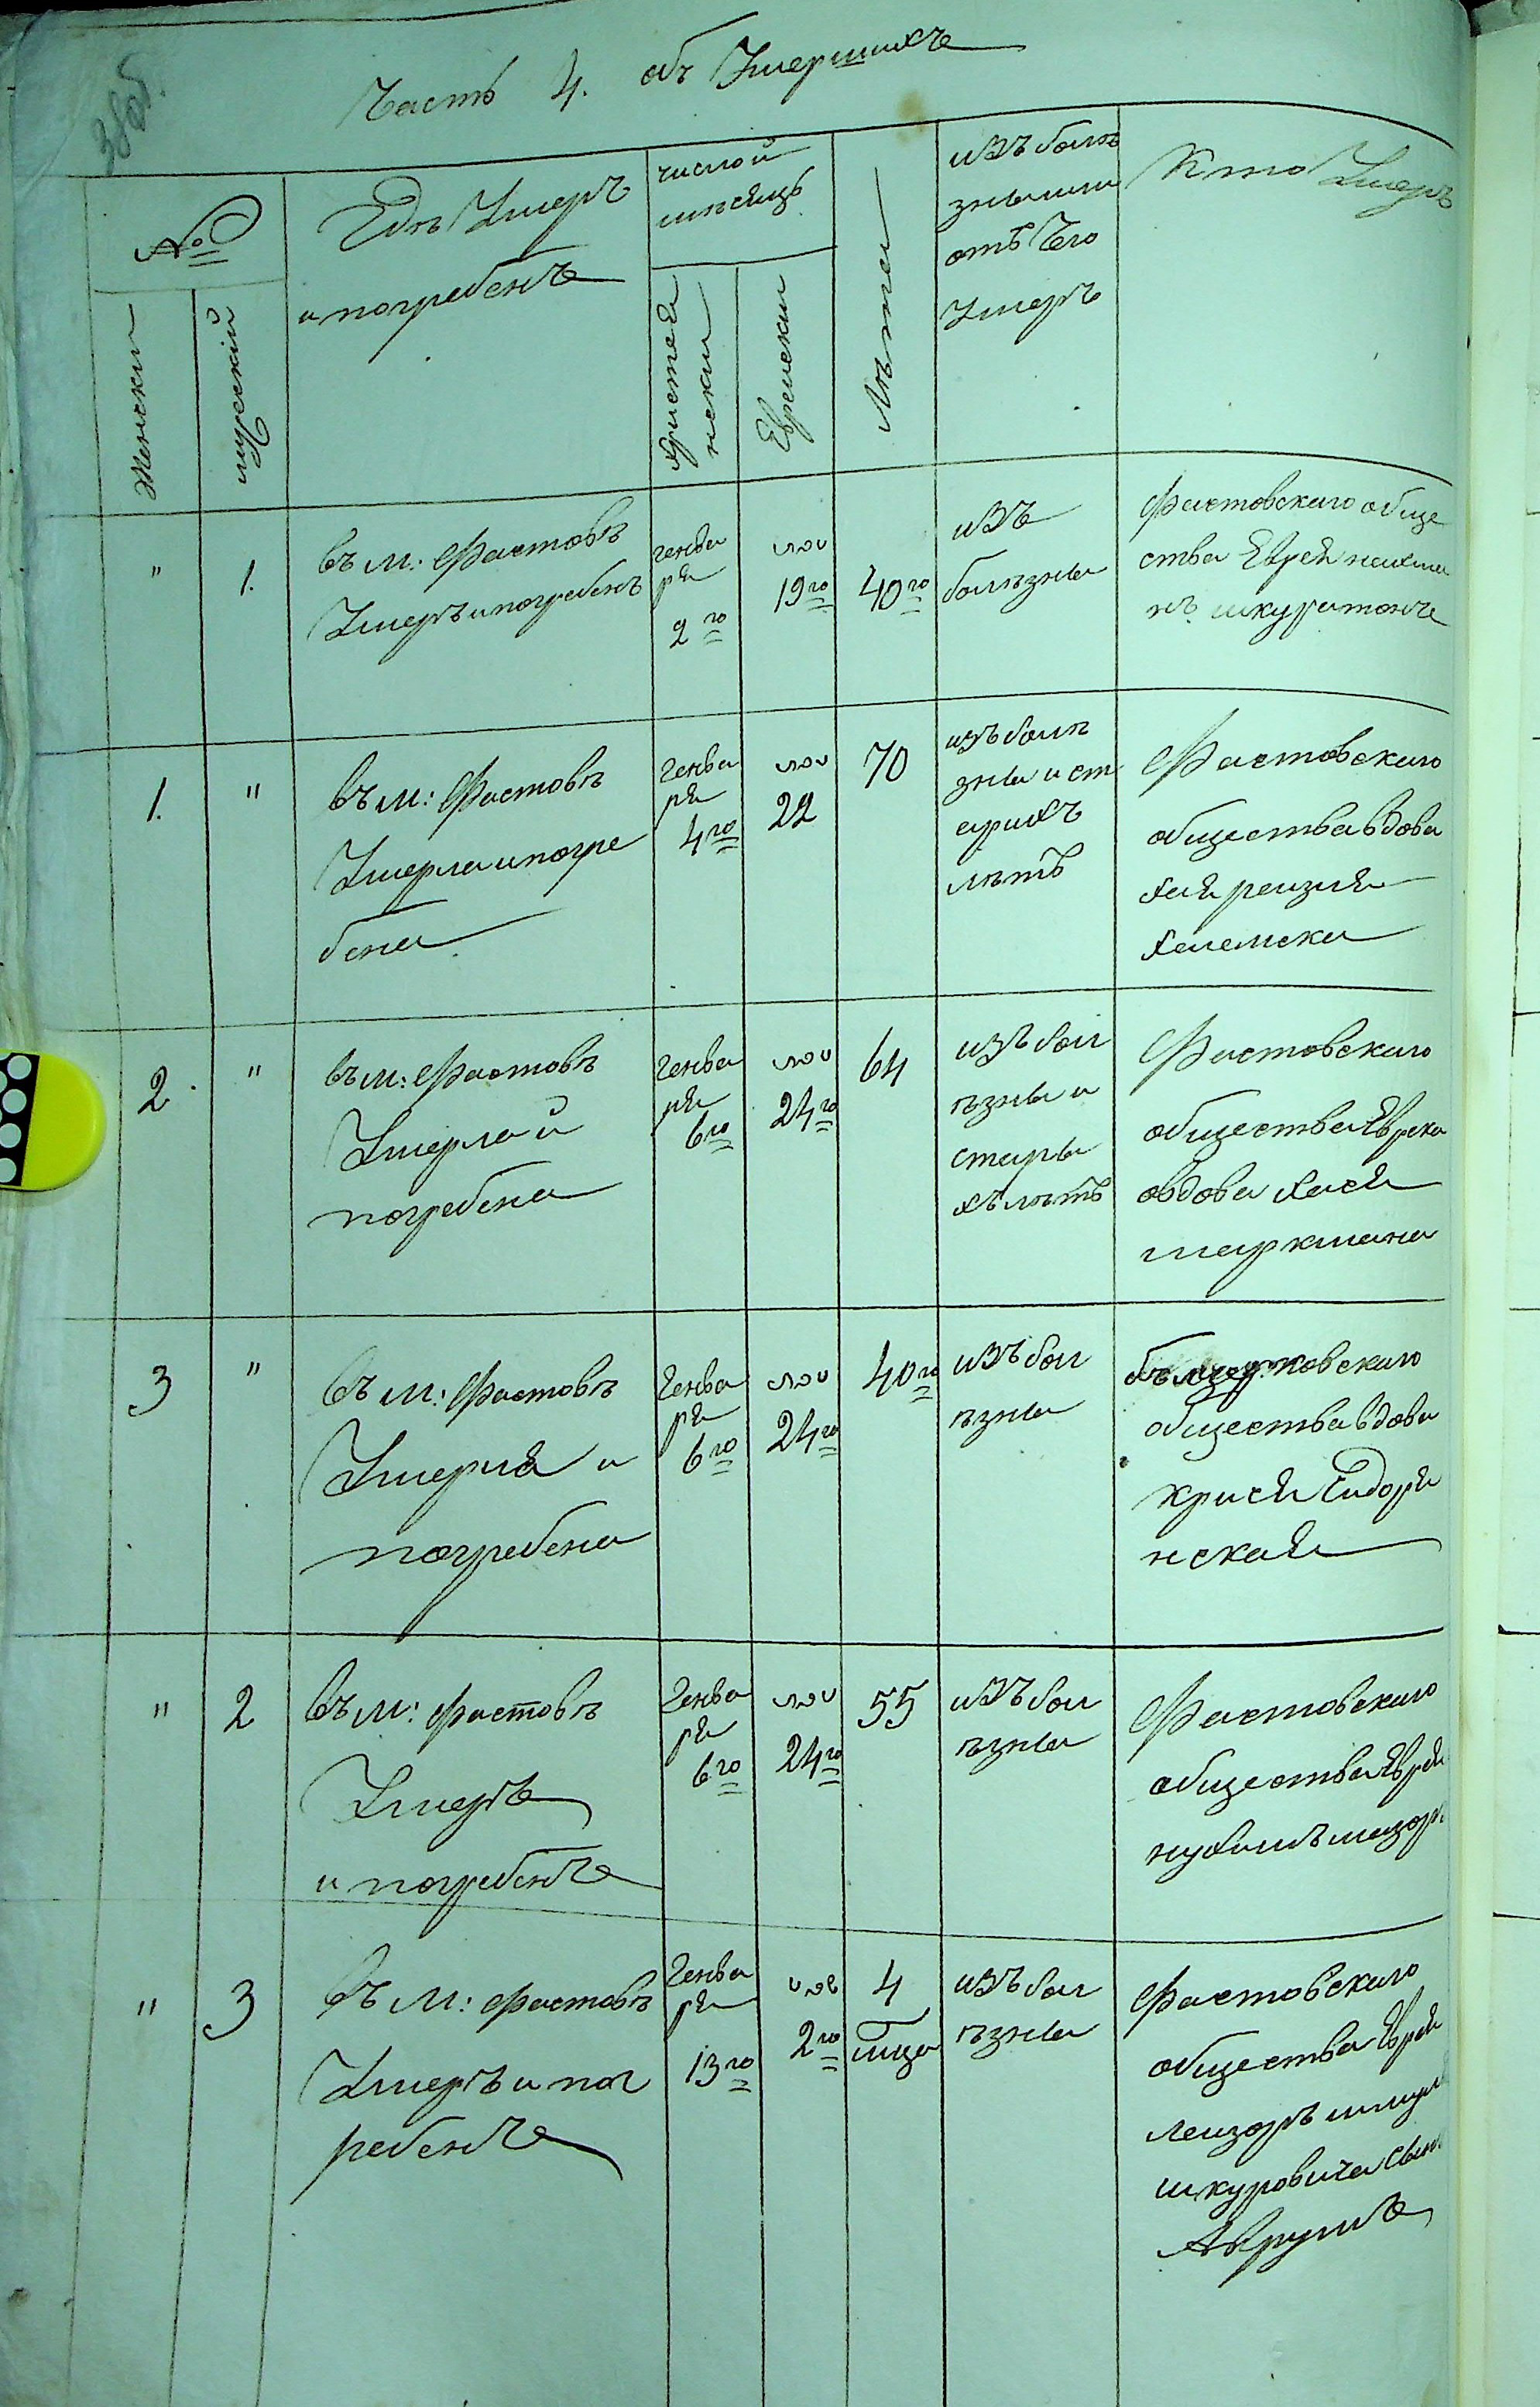 38об.
Часть 4. объ Умершихъ
№
Женски
мужескій
Гдѣ Умеръ
и погребенъ
число и
мѣсяцъ
Христея
нски
Еврейски
Лѣта
изъ болѣ
зны или
отъ Чего
Умеръ
Кто Умеръ
" 1.
въ м: Фастовѣ
Умеръ и погребенъ
Генва
ря
2го
19го
40го
изъ
болѣзны
Фастовскаго обще
ства Еврей нахма
нъ шкуратонъ
1. "
въ м: Фастовѣ
Умерла и погре
бена
Генва
ря
4го
22
70
изъ болѣ
зны и ст
арихъ
лѣтъ
Фастовскаго
общества вдова
хая рейзля
2 "
въ м: Фастовѣ
Умерла и
погребена
Генва
ря
6го
24го
64
изъ бол
ѣзны и
стары
хъ лѣтъ
Фастовскаго
общества Еврека
овдова хася
маркмана
3 "
въ м: Фастовѣ
Умерла и
погребена
Генва
ря
6го
24го
40го
изъ бол
ѣзны
общества вдова
крися Сидоря
нская
" 2
въ м: Фастовѣ
Умеръ
и погребенъ
Генва
ря
6го
24го
55
изъ бол
ѣзны
Фастовскаго
общества Еврей
нухимъ мазор
" 3
въ м: Фастовѣ
Умеръ и пог
ребенъ
Генва
ря
13го
2го
4
мца
изъ бол
ѣзны
Фастовскаго
общества Еврея
лейзоръ
шкуровича сынъ
Аврумъ